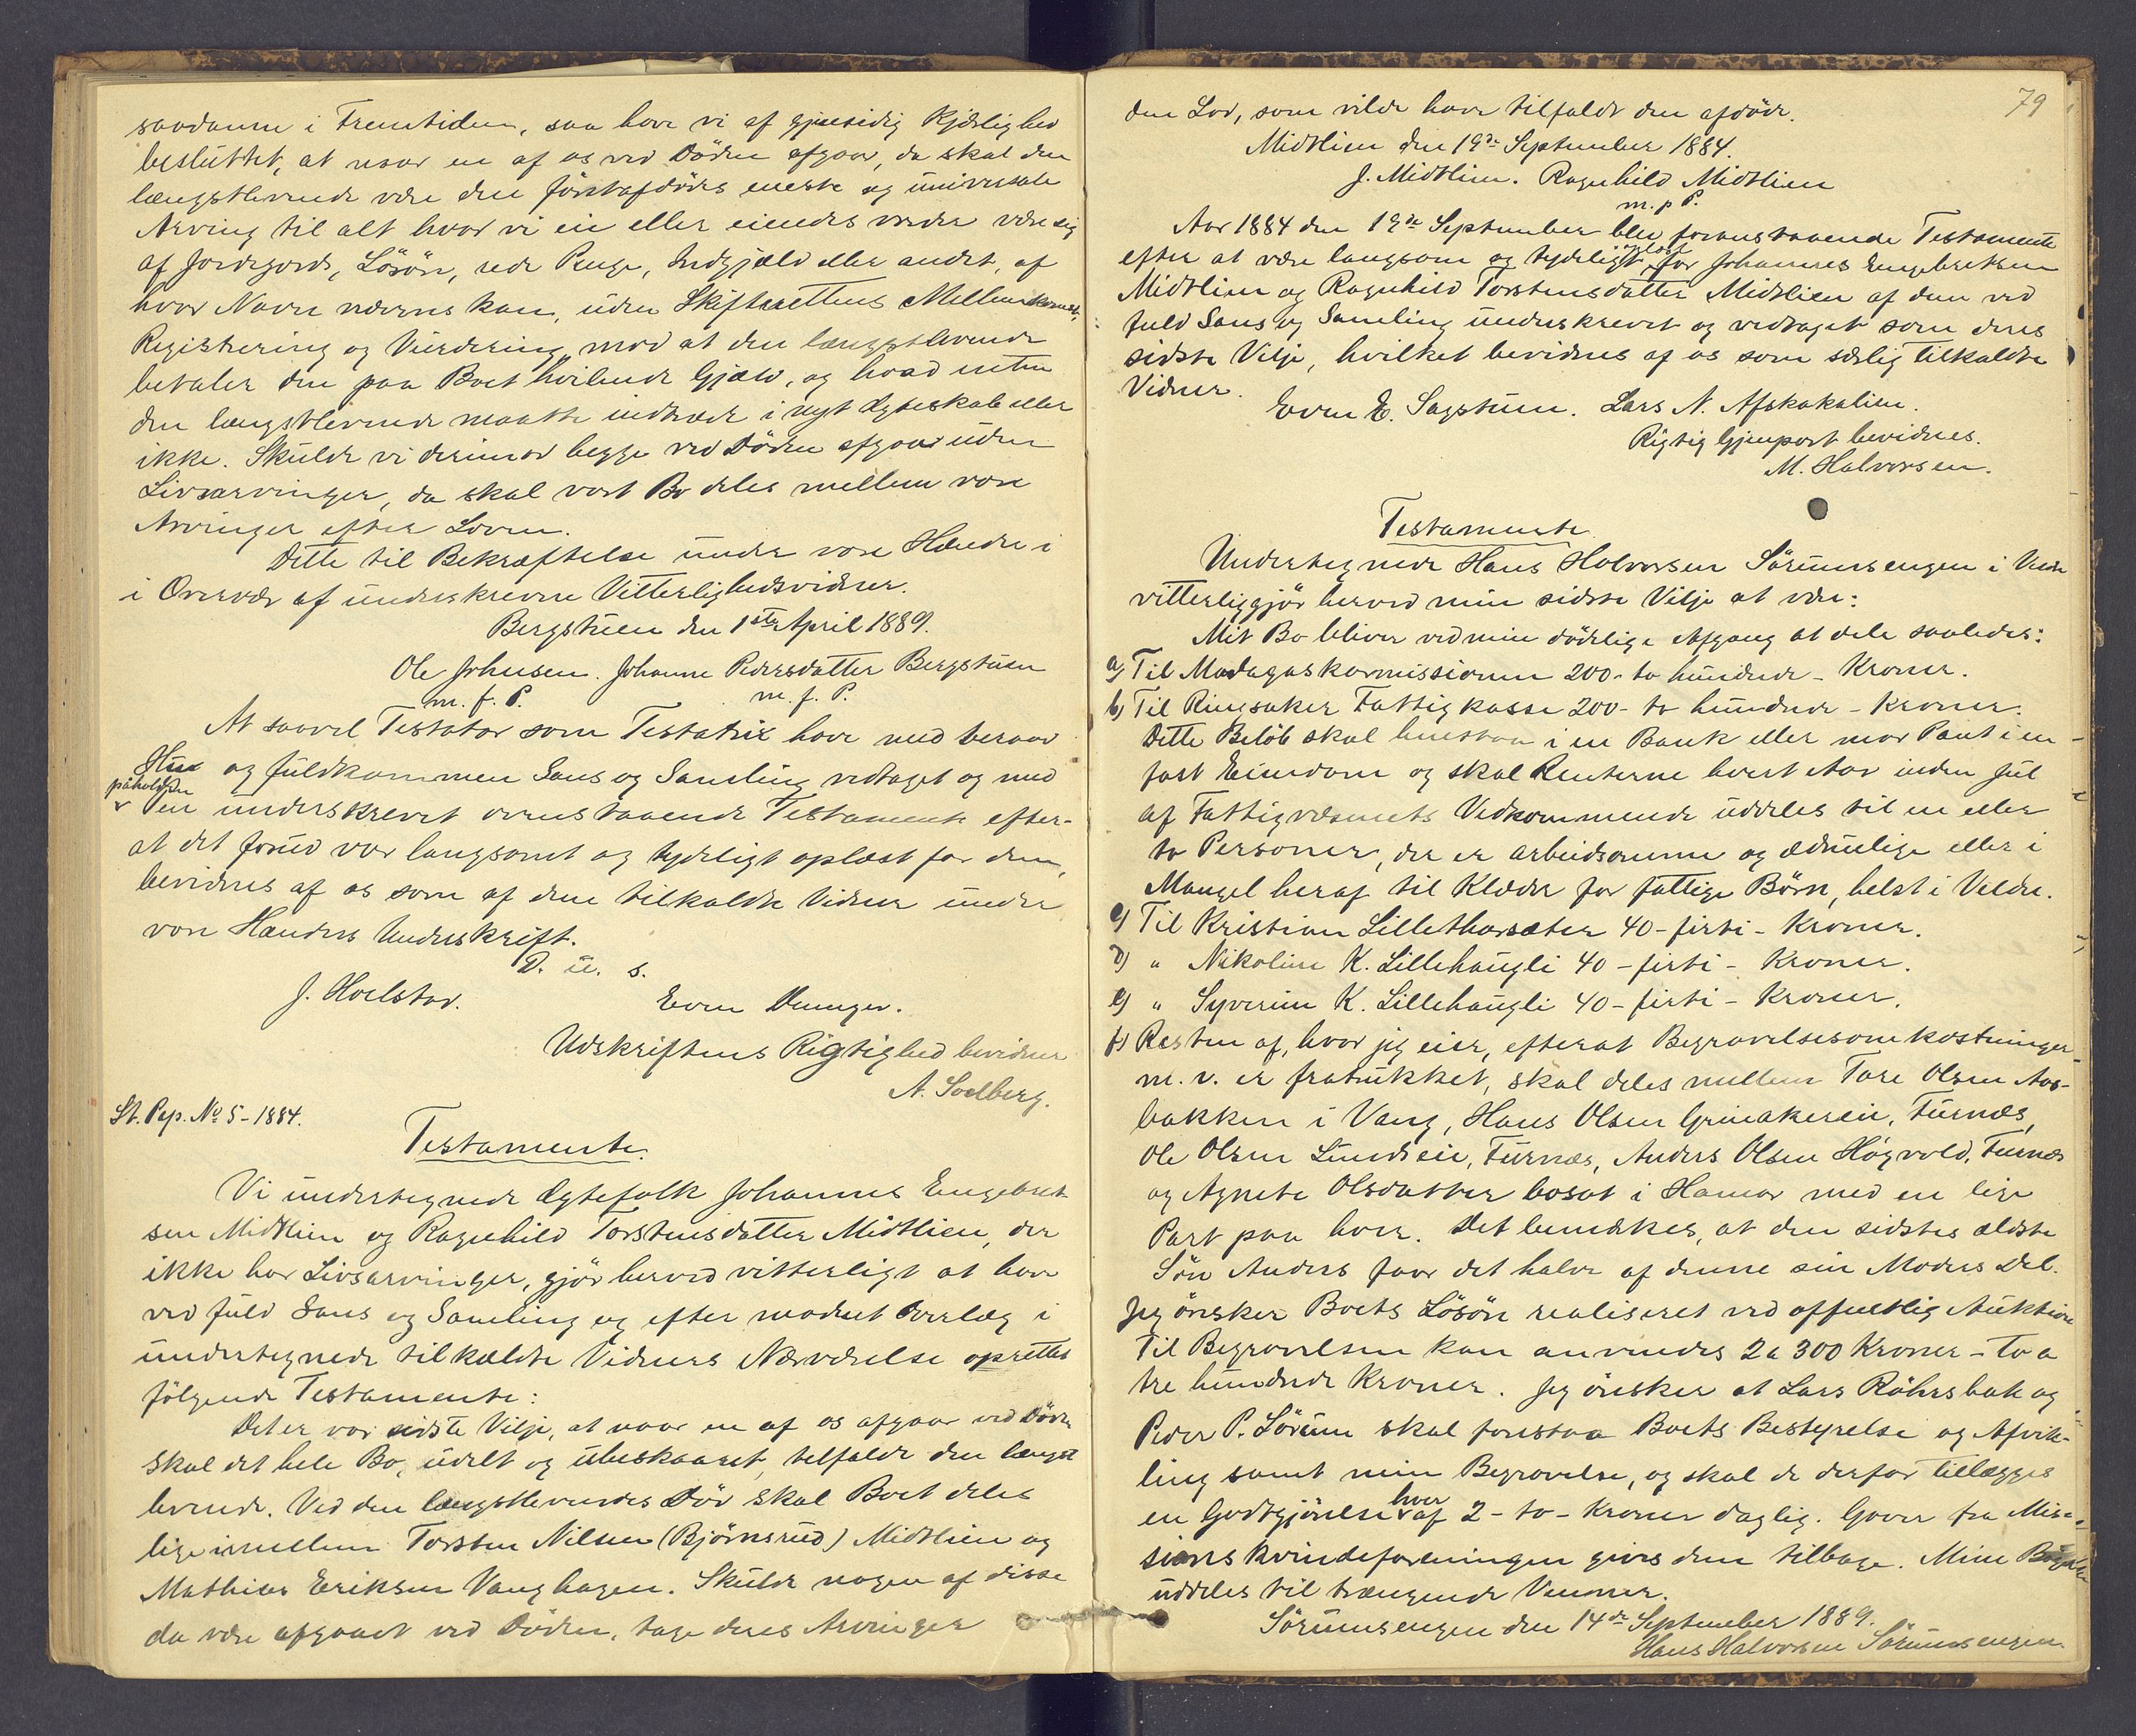 saadanne i Fremtiden, saa have vi af gjensidig Kjærlighed
besluttet, at naar en af os ved Döden afgaar, da skal den
længstlevende være den förstafdödes eneste og universale
Arving til alt hvad vi eie eller eiendes vorder være sig
af Jordegods, Lösöre, rede Penge, Indgjæld eller andet, af
hvad Navn nævnes kan, uden Skifterettens Mellemkomst,
Registrering og Vurdering, mod at den længstlevende
betaler den paa Boet hvilende Gjæld, og hvad enten
den længstlevende maatte indtræde i nyt Ægteskab eller
ikke. Skulde vi derimod begge ved Döden afgaa uden
Livsarvinger, da skal vort Bo deles mellem vore
Arvinger efter Loven.
Dette til Bekræftelse under vore Hænder i
i Overvær af underskrevne Vitterlighedsvidner.
Bergstuen den 1ste April 1889.
Ole Johnsen. Johanne Pedersdatter Bergstuen
m. f. P. m. f. P.
At saavel Testator som Testatrix have med beraad
Hu og fuldkommen Sans og Samling vedtaget og med
påholden
Pen underskrevet ovenstaaende Testamente efter-
at det forud var langsomt og tydeligt oplæst for dem,
bevidnes af os som af dem tilkaldte Vidner under
vore Hænders Underskrift.
D. u. s.
J. Hoelstad. Even
Udskriftens Rigtighed bevidner
A. Soelberg.
St. Pap. No 5 - 1884.
Testamente.
Vi undertegnede Ægtefolk Johannes Engebret-
sen Midtlien og Ragnhild Torstensdatter Midtlien, der
ikke har Livsarvinger, gjör herved vitterligt at have
ved fuld Sans og Samling og efter modent Overlæg i
undertegnede tilkaldte Vidners Nærværelse oprettet
fölgende Testamente:
Det er vor sidste Vilje, at naar en af os afgaar ved Döden
skal det hele Bo, udelt og ubeskaaret, tilfalde den længst
levende. Ved den længstlevendes Död skal Boet deles
lige imellem Torsten Nilsen (Björnsrud) Midtlien og
Mathias Eriksen Vanghagen. Skulde nogen af disse
da være afgaaet ved Döden, tage deres Arvinger
79
den Lod, som vilde have tilfaldt den afdöde.
Midtlien den 19de September 1884.
J. Midtlien. Ragnhild Midtlien
m. p P.
Aar 1884 den 19de September blev foranstaaende Testamente
oplæst
efter at være langsom og tydeligt for Johannes Engebretsen
Midtlien og Ragnhild Torstensdatter Midtlien af dem ved
fuld Sans og Samling underskrevet og vedtaget som deres
sidste Vilje, hvilket bevidnes af os som særlig tilkaldte
Vidner.
Even E. Sagstuen. Lars N. Afskakalien.
Rigtig Gjenpart bevidnes.
M. Halvorsen.
Testamente
Undertegnede Hans Halvorsen Sörumsengen i Veldre
vitterliggjör herved min sidste Vilje at være:
Mit Bo bliver ved min dödelige Afgang at dele saaledes:
a) Til Madagaskarmissionen 200 - to hundrede - Kroner.
b) Til Ringsaker Fattigkasse 200 - to hundrede - Kroner.
Dette Belöb skal henstaa i en Bank eller mod Pant i en
fast Eiendom og skal Renterne hvert Aar inden Jul
af Fattigvæsenets Vedkommende uddeles til en eller
to Personer, der er arbeidsomme og ædruelige eller i
Mangel heraf til Klæder for fattige Börn, helst i Veldre.
c) Til Kristian Lillethorsæter 40 - firti - Kroner.
d) " Nikoline K. Lillehaugli 40 - firti - Kroner.
e) " Syverin K. Lillehaugli 40 - firti - Kroner.
f) Resten af, hvad jeg eier, efterat Begravelsesomkostninger
m. v. er fratrukket, skal deles mellem Tore Olsen Aas-
bakken i Vang, Hans Olsen Grinakereie, Furnæs,
Ole Olsen Lundseie, Furnæs, Anders Olsen Högvold, Furnæs
og Agnete Olsdatter bosat i Hamar med en lige
Part paa hver. Det bemærkes, at den sidstes ældste
Sön Anders faar det halve af denne sin Moders Del.
Jeg önsker Boets Lösöre realiseret ved offentlig Auktion
Til Begravelsen kan anvendes 2 a 300 Kroner - to a
tre hundrede Kroner. Jeg önsker at Lars Röhrsbak og
Peder P. Sörum skal forestaa Boets Bestyrelse og Afvik-
ling samt min Begravelse, og skal de derfor tillægges
hver
en Godtgjörelse af 2 - to - Kroner daglig. Gaver fra Mis-
sionskvindeforeningen gives dem tilbage. Mine
uddeles til trængende Venner.
Sörumsengen den 14de September 1889.
Hans Halvorsen Sörumsengen.